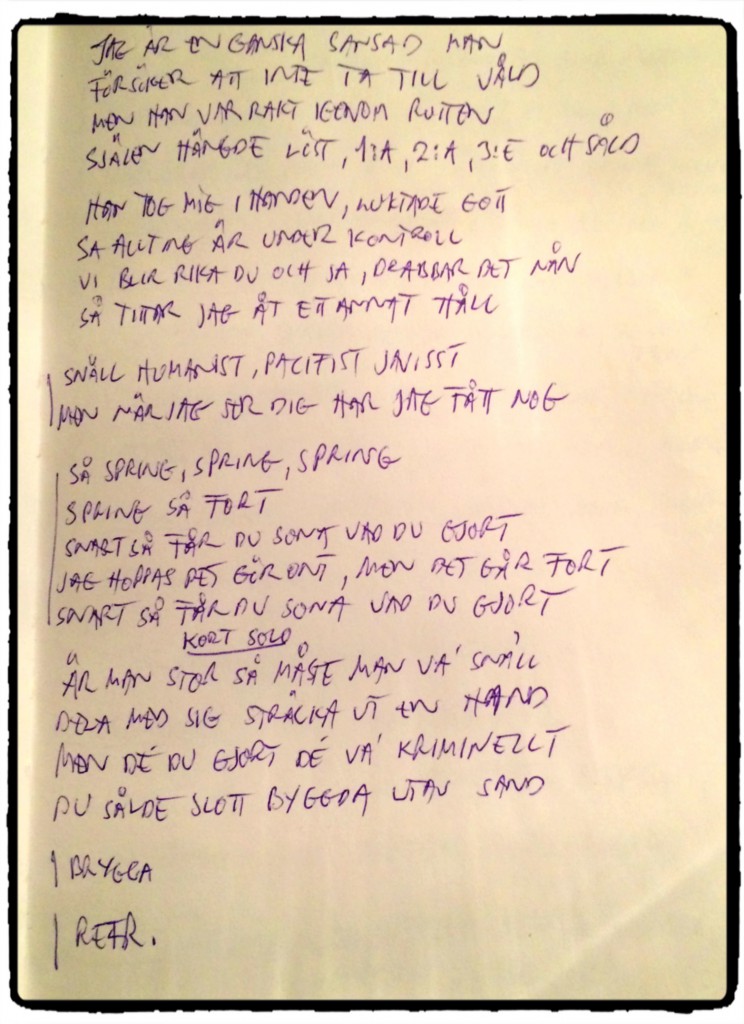 JAG ÄR EN GANSKA SANSAD MAN
FÖRSÖKER ATT INTE TA TILL VÅLD
MEN HAN VAR RAKT IGENOM RUTTEN
SJÄLEN HÄNGDE LÖST, 1:A, 2:A, 3:E OCH SÅLD
HAN TOG MIG I HANDEN, LUKTADE GOTT
SA ALLTING ÄR UNDER KONTROLL
VI BLIR RIKA DU OCH JA, DRABBAR DET NÅN
SÅ TITTAR JAG ÅT ETT ANNAT HÅLL
SNÄLL HUMANIST, PACIFIST JAVISST
MEN NÄR JAG SER DIG HAR JAG FÅTT NOG
SÅ SPRING, SPRING, SPRING
SPRING SÅ FORT
SNART SÅ FÅR DU SONA VAD DU GJORT
JAG HOPPAS DET GÖR ONT, MEN DET GÅR FORT
SNART SÅ FÅR DU SONA VAD DU GJORT
KORT SOLO
ÄR MAN STOR SÅ MÅSTE MAN VA' SNÄLL
DELA MED SIG STRÄCKA UT EN HAND
MEN DÉ DU GJORT DÉ VA' KRIMINELLT
DU SÅLDE SLOTT BYGGDA UTAV SAND
BRYGGA
REFR.